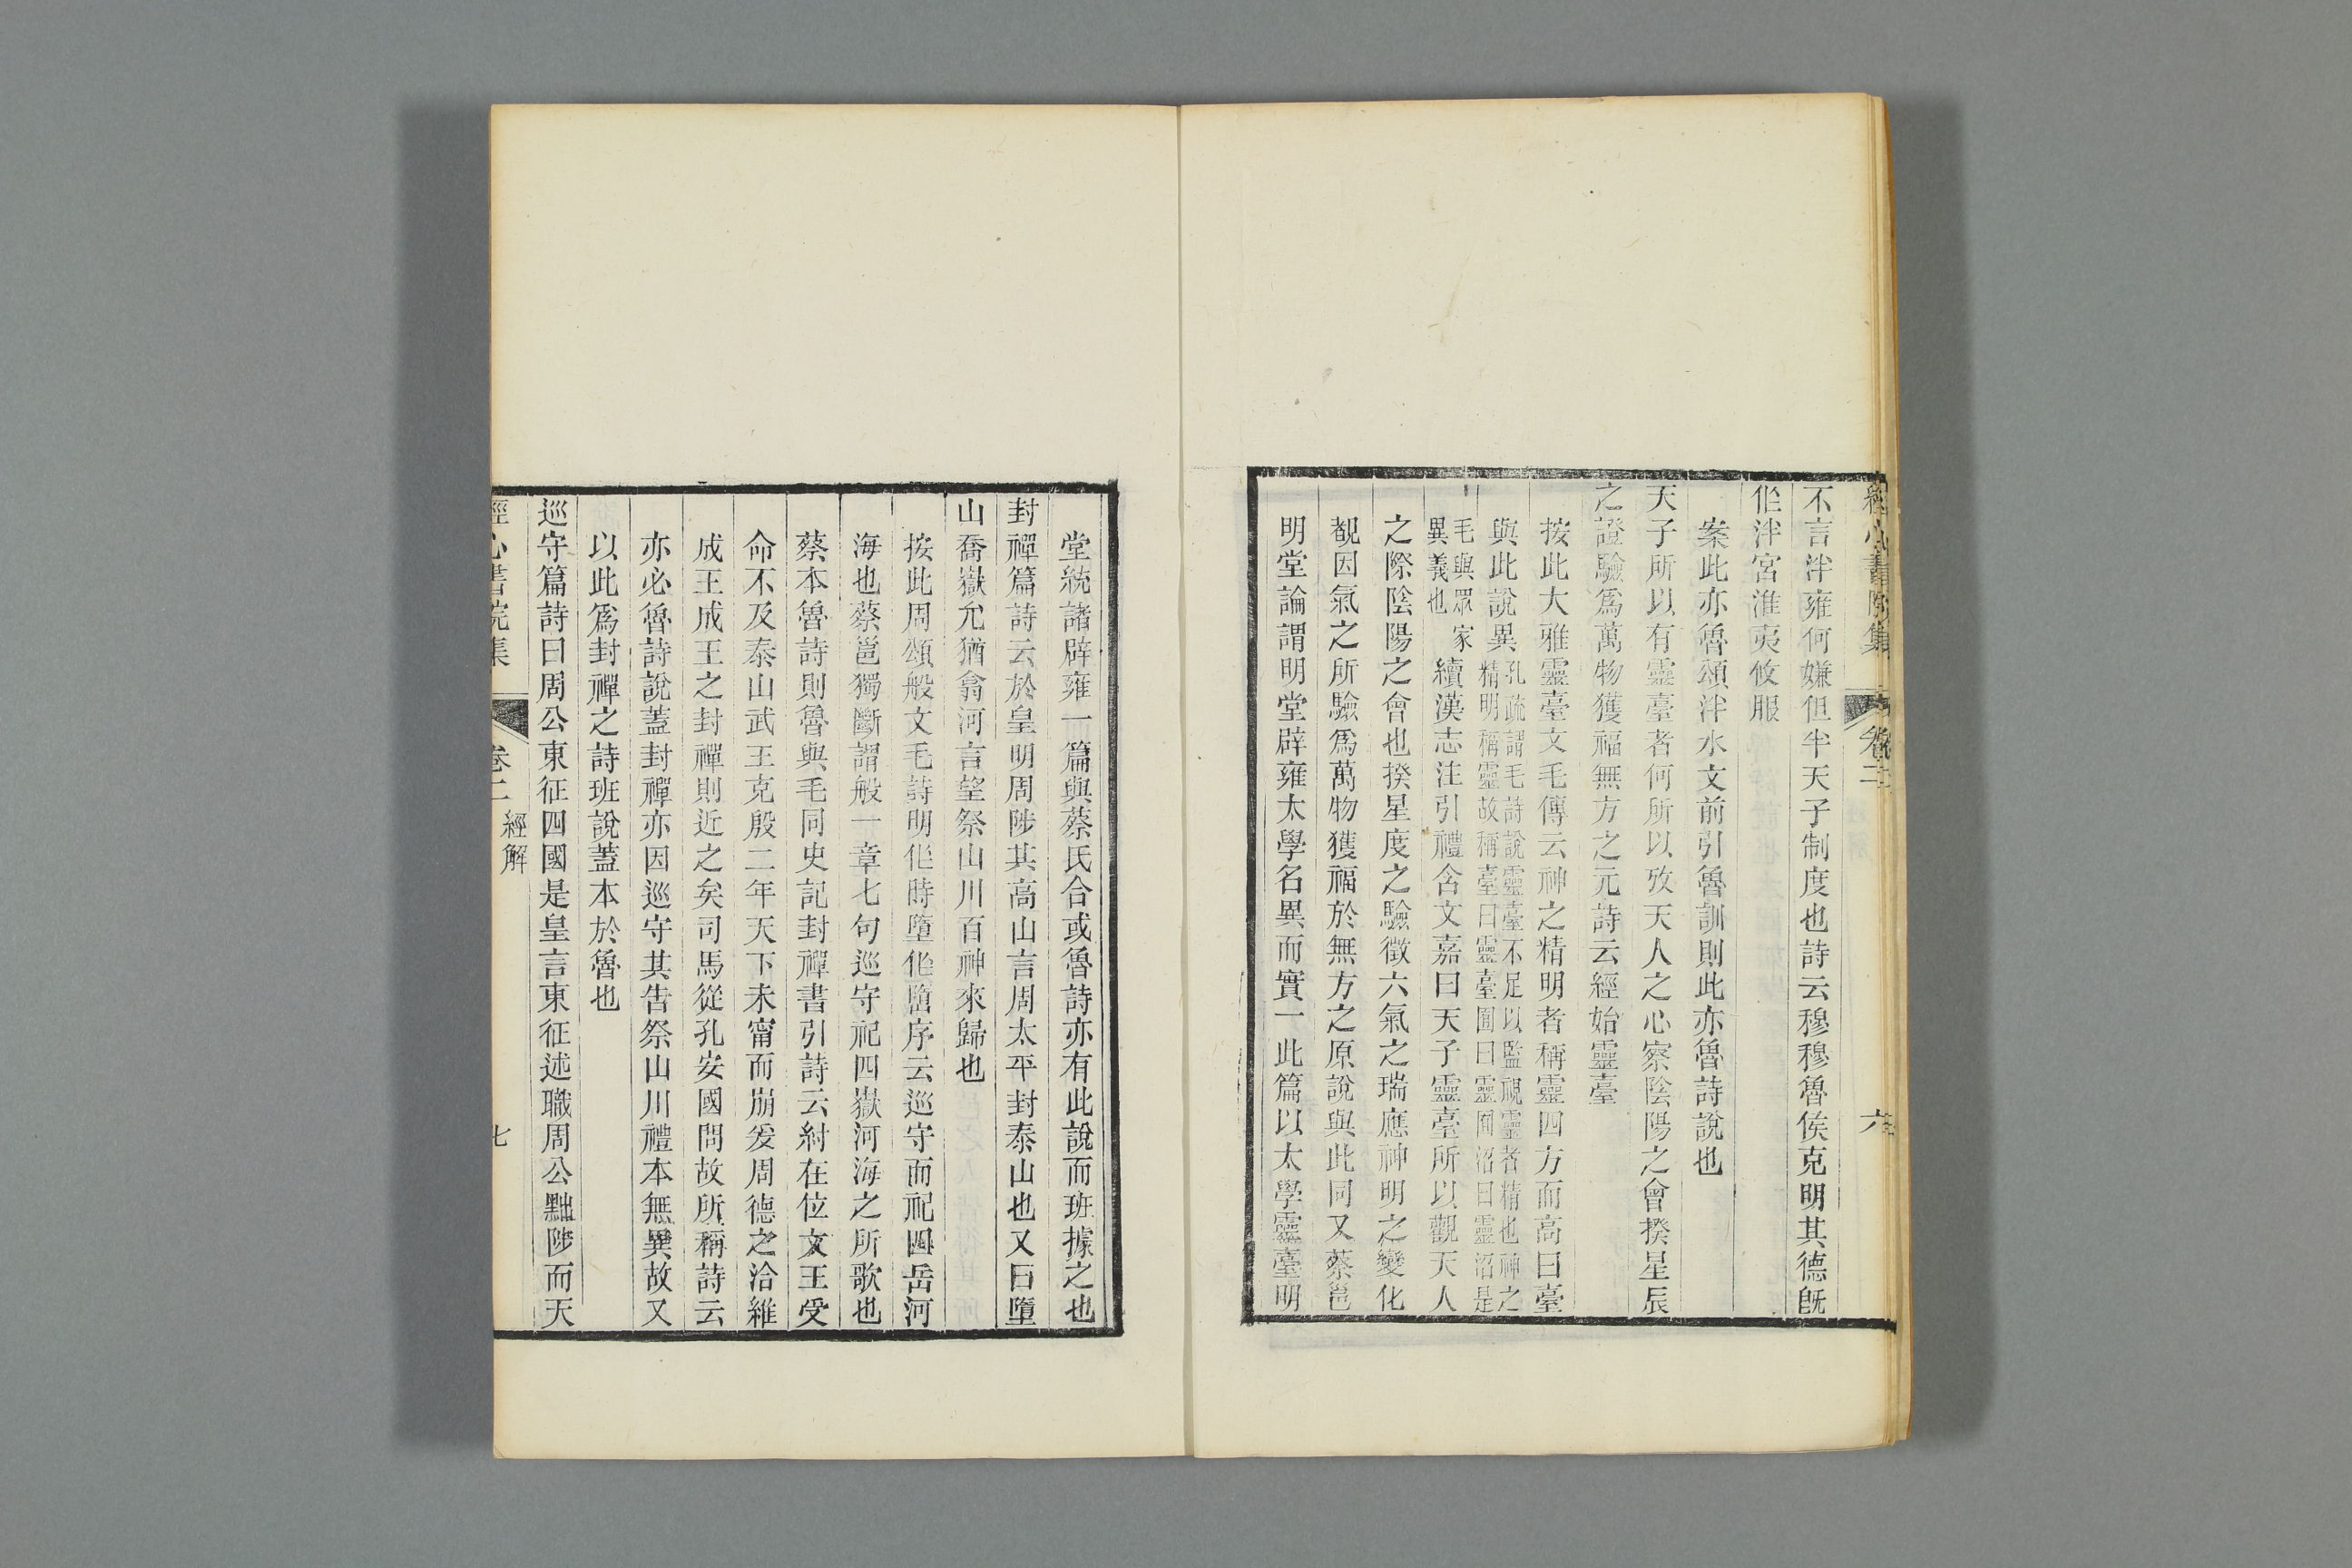 經心書院集 卷二 六
不言泮雍何嫌但半天子制度也詩云穆穆魯侯克明其德旣
作泮宮淮夷攸服
案此亦魯頌泮水文前引魯訓則此亦魯詩說也
天子所以有靈臺者何所以攷天人之心察陰陽之會揆星辰
之證驗爲萬物獲福無方之元詩云經始靈臺
按此大雅靈臺文毛傳云神之精明者稱靈四方而高曰臺
與此說異孔疏謂毛詩說靈臺不足以監視靈者精也神之
精明稱靈故稱臺曰靈臺囿曰靈囿沼曰靈沼是
毛與眾家
異義也
續漢志注引禮含文嘉曰天子靈臺所以觀天人
之際陰陽之會也揆星度之驗徵六氣之瑞應神明之變化
覩因氣之所驗爲萬物獲福於無方之原說與此同又蔡邕
明堂論謂明堂辟雍太學名異而實一此篇以太學靈臺明
堂統諸辟雍一篇與蔡氏合或魯詩亦有此說而班據之也
封禪篇詩云於皇明周陟其高山言周太平封泰山也又曰墮
山喬嶽允猶翕河言望祭山川百神來歸也
按此周頌般文毛詩明作時墮作嶞序云巡守而祀四岳河
海也蔡邕獨斷謂般一章七句巡守祀四嶽河海之所歌也
蔡本魯詩則魯與毛同史記封禪書引詩云紂在位文王受
命不及泰山武王克殷二年天下未甯而崩爰周德之洽維
成王成王之封禪則近之矣司馬從孔安國問故所稱詩云
亦必魯詩說蓋封禪亦因巡守其告祭山川禮本無異故又
以此爲封禪之詩班說蓋本於魯也
巡守篇詩曰周公東征四國是皇言東征述職周公黜陟而天
經心書院集 卷二 經解 七